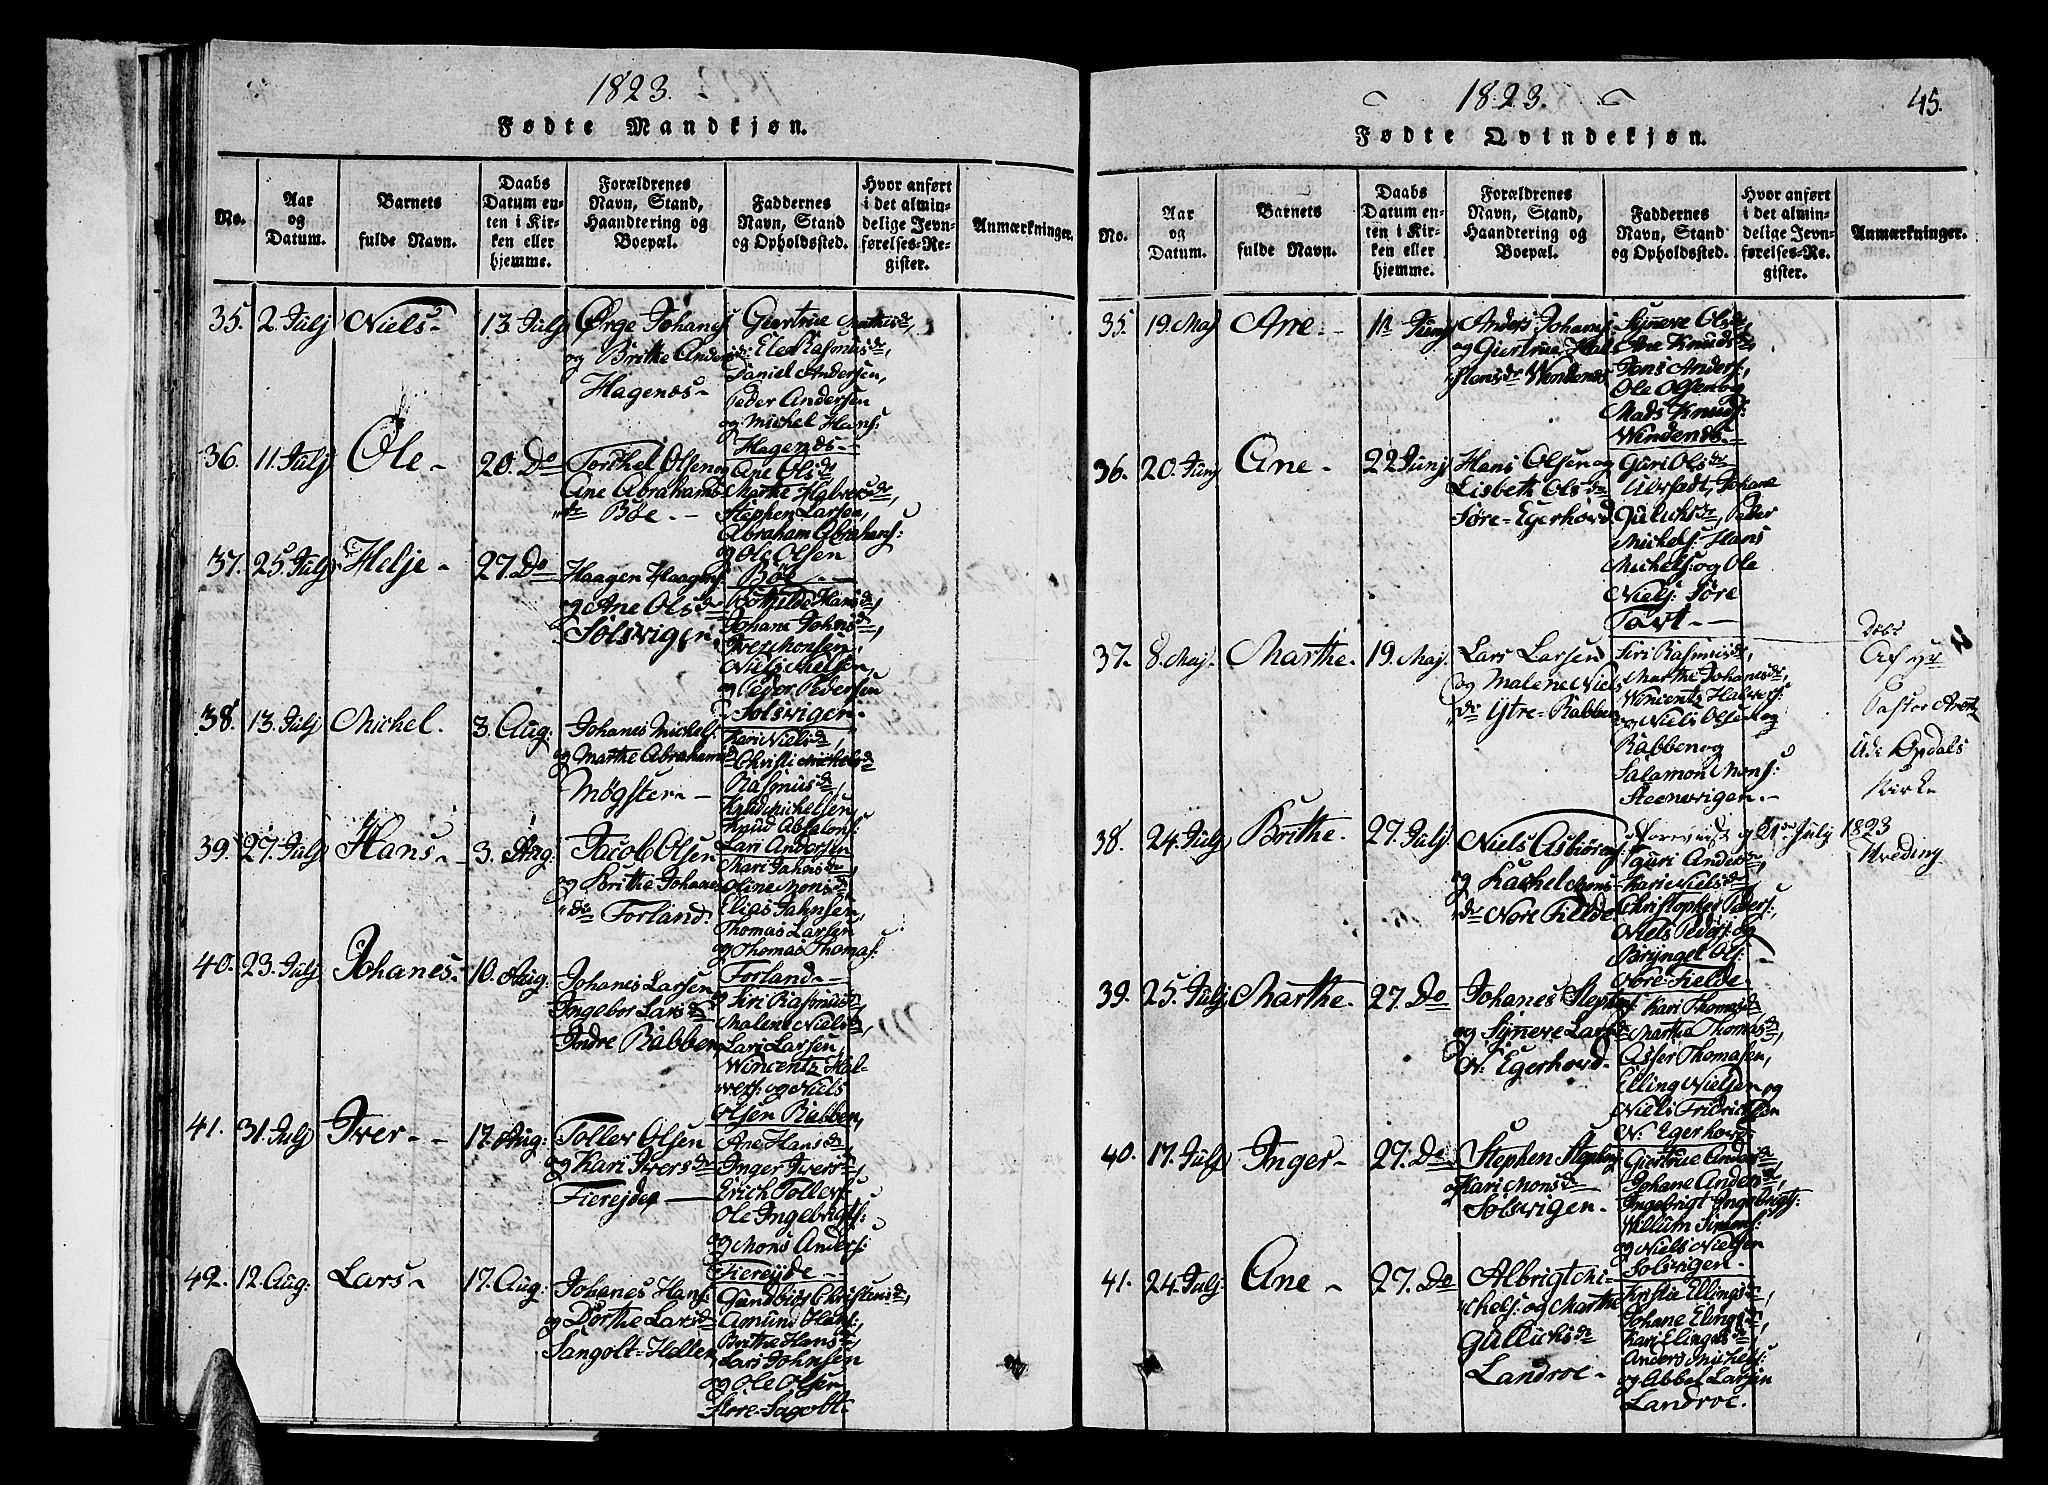 1823.
Fødte Mandkjøn.
No.
Aar
og
Datum.
Barnets
fulde Navn.
Daabs
Datum en-
ten i Kir-
ken eller
hjemme.
Forældrenes
Navn, Stand,
Haandtering og
Boepæl.
Faddernes
Navn, Stand
og Opholdssted.
Hvor anført
i det almin-
delige Jevn-
førelses-Re-
gister.
Anmærkninger.
35. 2. Julj Niels 13 Julj
Ørge Johans
og Brithe Anders
dr
Hagenæs
Giertrue Mathisdr,
Ele Rasmusdr,
Daniel Andersen,
Peder Andersen
og Michel Hans:
Hagenæs
36. 11. Julj Ole 20. Do
Torchel Olsen og
Ane Abrahams
dr Bøe
Ane Olsdr
Marthe Halversdr,
Stephen Larsen,
Abraham Abrahams:
og Ole Olsen
Bøe
37. 25. Julj Helje 27. Do
Haagen Haagens:
og Ane Olsdr
Solsvigen
Bothilde Hansdr,
Johane Johnsdr,
Iver Monsen,
Niels Nielsen
og Peder Pedersen
Solsvigen
38. 13. Julj Michel. 3. Aug:
Johanes Michels:
og Marthe Abrahamsdr
Møgster
Kari Nielsdr,
Christi Michelsdr
Rasmusdr,
Knud Michelsen
Knud Absalons:
Lars Andersen
39. 27. Julj Hans 3. Aug:
Jacob Olsen
og Brithe Johanes
dr Forland
Mari Jahnsdr
Oline Monsdr
Elias Jahnsen,
Thomas Larsen
og Thomas Thomas:
Forland
40. 23. Julj Johanes 10. Aug:
Johanes Larsen
Ingebor Larsdr
Indre Rabben
Siri Rasmusdr
Malene Nielsdr,
Lars Larsen,
Wincentz Hal-
vers: og Niels
Olsen Rabben,
41. 31. Julj Iver 17. Aug:
Tollev Olsen
og Kari Iversdr
Fierejde
Ane Hansdr
Inger Iversdr,
Erich Tollefs:
Ole Ingebrigts:
og Mons Anders:
Fiereyde
42. 12. Aug: Lars 17. Aug:
Johanes Hans:
og Dorthe Larsdr
Sangolt-Hellen
Gundbiør Christensdr,
Amund Hans:,
Brithe Hansdr,
Lars Johnsen
og Ole Olsen
Store-Sagolt
1823.
45.
Fødte Qvindekjøn.
No.
Aar
og
Datum.
Barnets
fulde Navn.
Daabs
Datum en-
ten i Kir-
ken eller
hjemme.
Forældrenes
Navn, Stand,
Haandtering og
Boepæl.
Faddernes
Navn, Stand
og Opholdssted.
Hvor anført
i det almin-
delige Jevn-
førelses-Re-
gister.
Anmærkninger.
35. 19 Maj Ane Junj
Anders Johans:
og Giertrue
Hansdr Wendenes
Synneve Olsdr,
Ane Knudsdr,
Jens Anders:
Ole Olsen og
Mads Knuds:
Windenes
36. 20. Junj Ane 22 Junj
Hans Olsen og
Lisbeth Olsdr
Søre-Egerhovd
Guri Olsdr
Johane
Guluchsdr, Peder
Michels: Hans
Michels: og Ole
Niels: Søre
Tovt
37. 8. Maj. Marthe. 19. Maj
Lars Larsen
og Malene Niels
dr Ytre-Rabben
Siri Rasmusdr,
Marthe Johanesdr,
Wincentz Halvers:
og Niels Olsen og
Rabben og
Salamon Mons:
Steensvigen.
Døbt
Af
Pastor Arentz
Ude Opdals
Kirke
38. 24. Julj Brithe. 27. Julj.
Niels Asbiørns:
og Rachel Mons
dr Nore Fielde
Forevist og 21 Julj 1823
Hveding
Guri Andersdr
Kari Nielsdr
Christopher Peders:,
Niels Peders: og
Bryngel Ols:
Nore-Fielde
39. 25. Julj Marthe. 27. Do
Johanes Stephens:
og Synneve Larsdr
N: Egerhovd.
Kari Thomasdr
Marthe Thomasdr,
Asser Thomasen,
Elling Nielsen og
Niels Fridrichsen
N: Egerhovd
40. 17. Julj Inger 27. Do
Stephen Stephens
og Kari Monsdr
Solsvigen
Giertrue Andersdr
Johane Andersdr,
Ingebrigt Ingebrigts:
Willum Simens:
og Niels Nielsen
Solsvigen.
41. 24. Julj: Ane 27. Do
Albrigt Mi-
chels: og Marthe
Gullichsdr
Landroe
Kristie Ellingsdr,
Johane Elingsdr
Kari Elingsdr
Anders Michels:
og Abbel Larsen
Landroe.